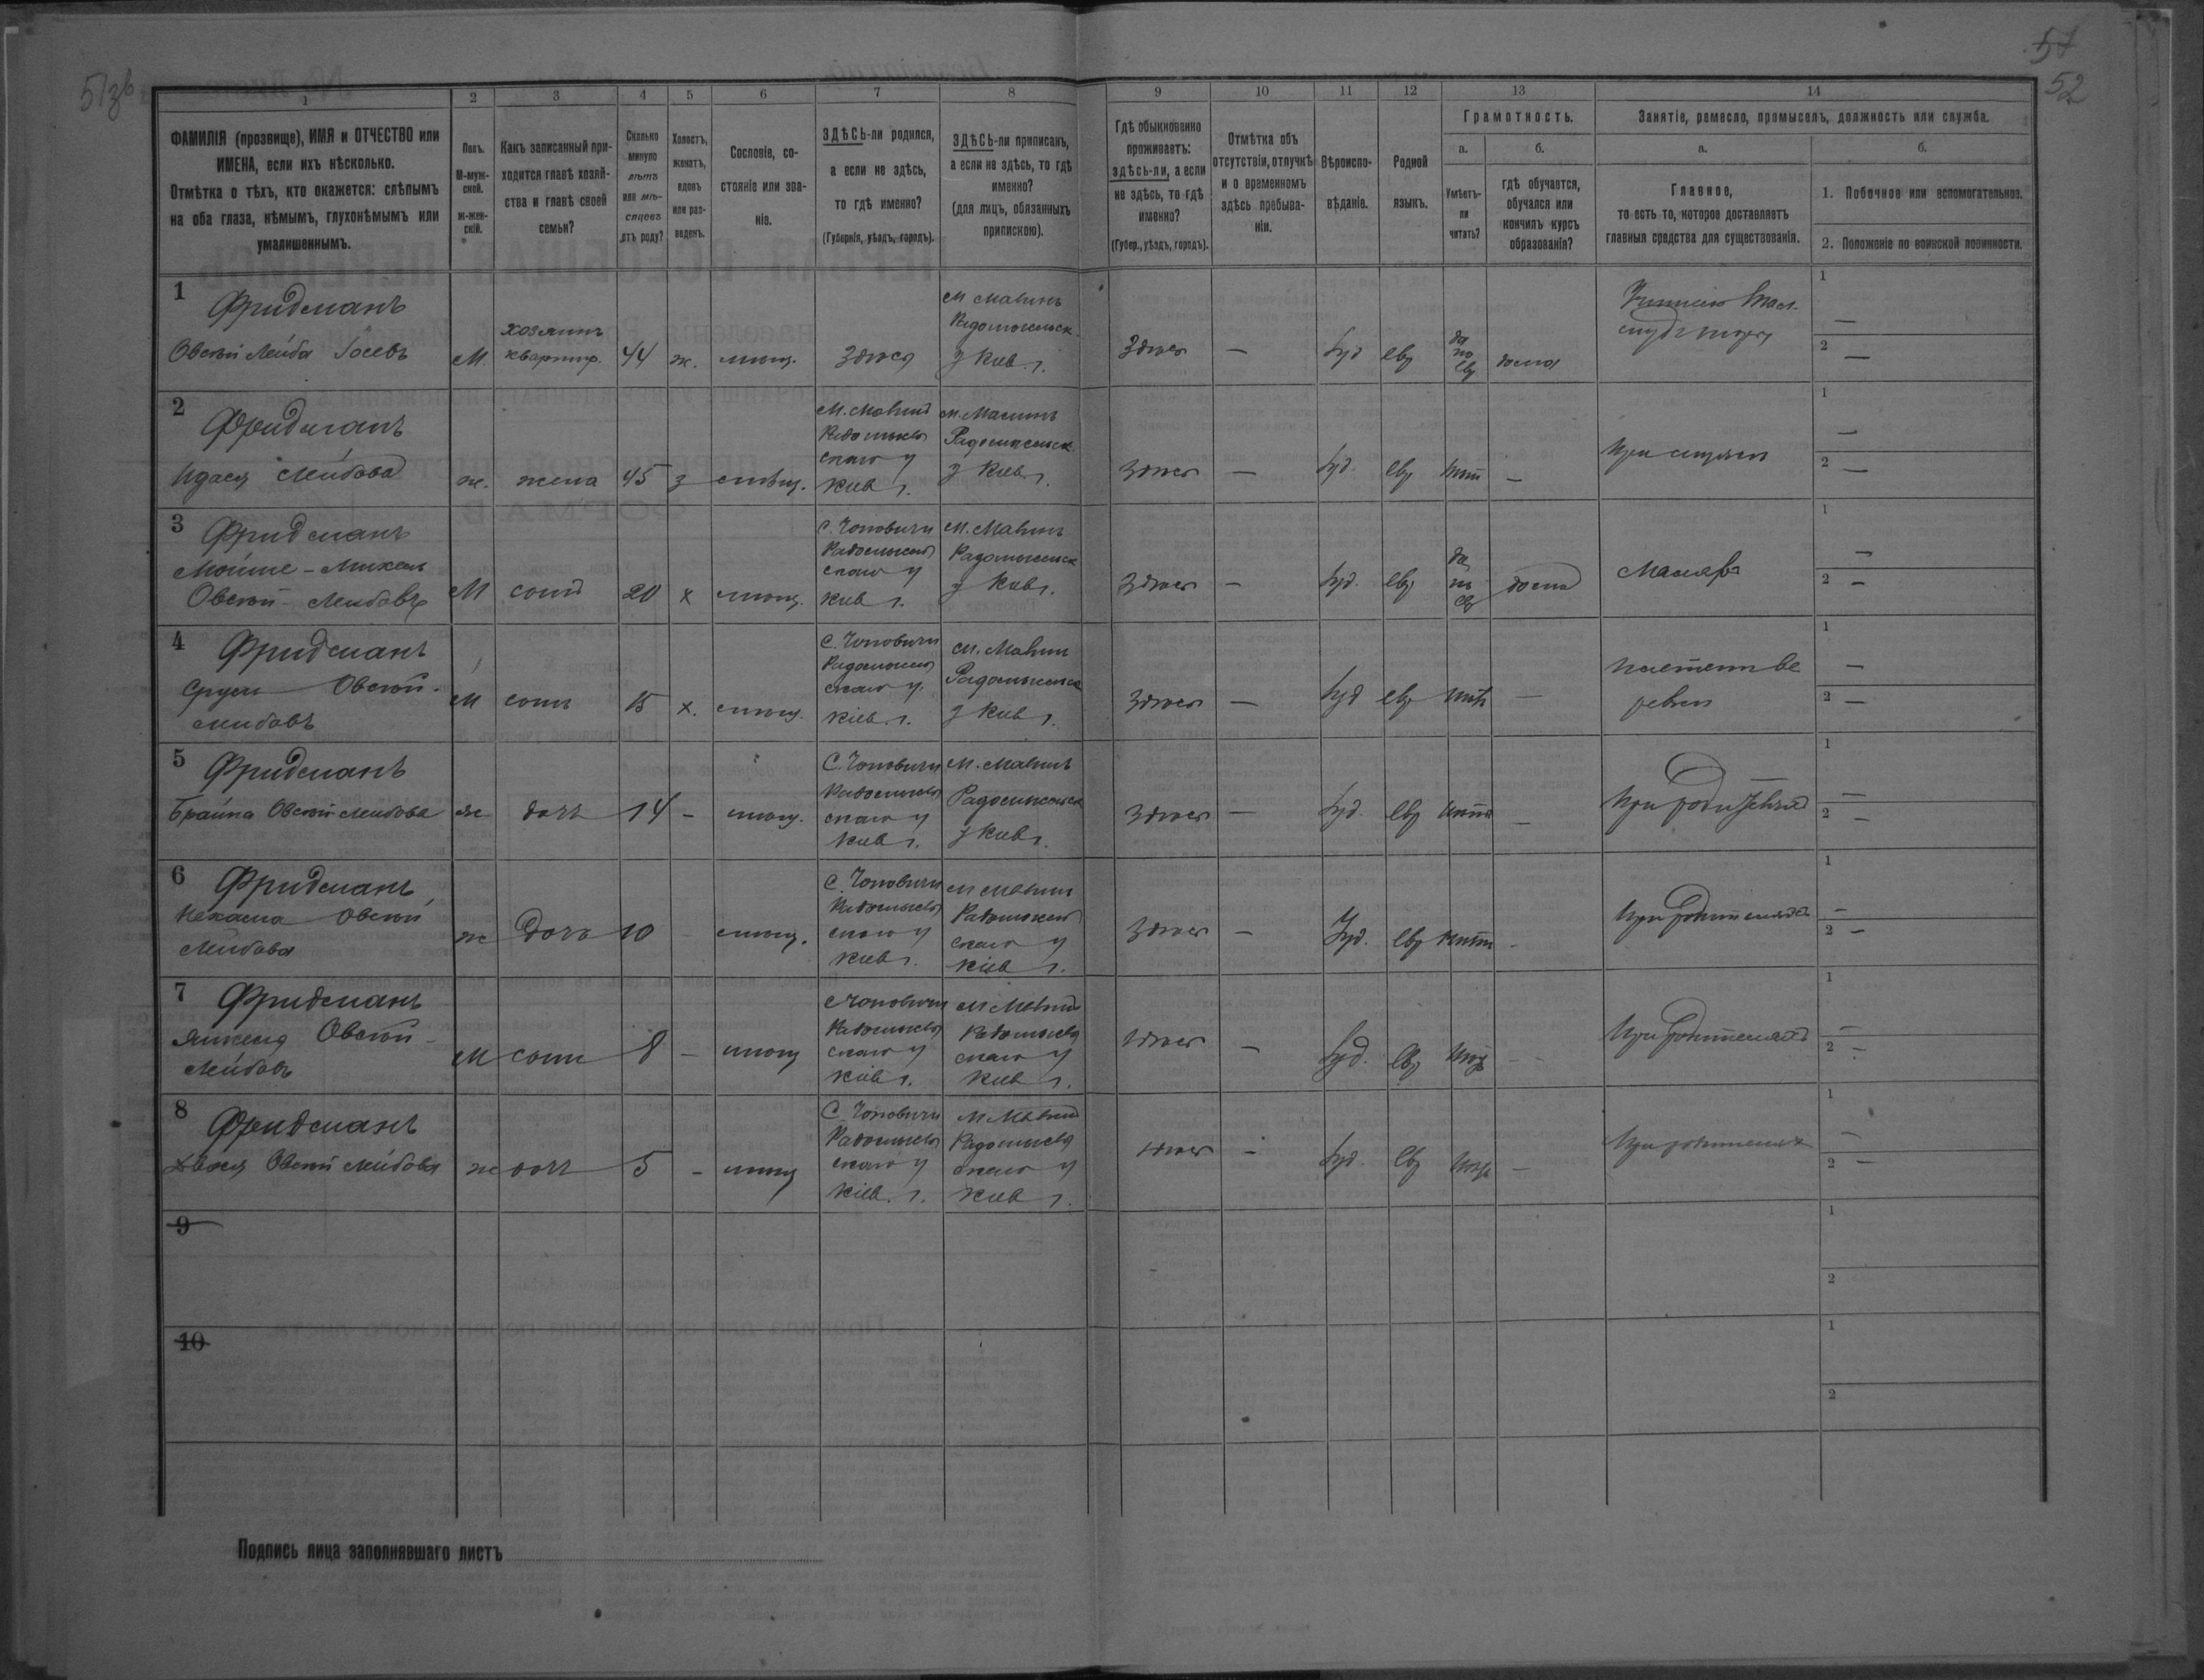 51 зв
57
52
1 2 3 4 5 6 7 8 9 10 11 12 13 14
ФАМИЛІЯ (прозвище), ИМЯ и ОТЧЕСТВО или
ИМЕНА, если ихъ нѣсколько.
Отмѣтка о тѣхъ, кто окажется: слѣпымъ
на оба глаза, нѣмымъ, глухонѣмымъ или
умалишеннымъ.
Полъ.
М-муж-
ской.
ж-жен-
скій.
Какъ записанный при-
ходится главѣ хозяй-
ства и главѣ своей
семьи?
Сколько
минуло
лѣтъ
или мѣ-
сяцевъ
отъ роду?
Холостъ,
женатъ,
вдовъ
или раз-
веденъ.
Сословіе, со-
стояніе или зва-
ніе.
ЗДѢСЬ-ли родился,
а если не здѣсь,
то гдѣ именно?
(Губернія, уѣздъ, городъ).
ЗДѢСЬ-ли приписанъ,
а если не здѣсь, то гдѣ
именно?
(для лицъ, обязанныхъ
припискою).
Гдѣ обыкновенно
проживаетъ:
здѣсь-ли, а если
не здѣсь, то гдѣ
именно?
(Губер., уѣздъ, городъ).
Отмѣтка объ
отсутствіи, отлучкѣ
и о временномъ
здѣсь пребыва-
ніи.
Вѣроиспо-
вѣданіе.
Родной
языкъ.
Грамотность.
а.
Умѣетъ-
ли
читать?
б.
гдѣ обучается,
обучался или
кончилъ курсъ
образованія?
Занятіе, ремесло, промыселъ, должность или служба.
а.
Главное,
то есть то, которое доставляетъ
главныя средства для существованія.
б.
1. Побочное или вспомогательное.
2. Положеніе по воинской повинности.
1
Фридманъ
Овсѣй Лейба Іосевъ
М.
хозяинъ
квартир.
44
ж.
мѣщ.
Здѣся
М Малинъ
Радомысльск.
у Кіев. г.
Здѣсь
—
Іуд
евр
да
по
евр
дома
1 —
2 —
2
Фридманъ
Лейбова
ж.
жена
45
з
мѣщ.
М. Малинъ
Радомысль
скаго у
Кіев г.
м. Малинъ
Радомысльск
у Кіев г.
Здѣсь
—
Іуд.
евр
нѣт
—
При мужѣ
1 —
2 —
3
Фридманъ
Мойше-Михель
Овсѣй-Лейбовъ
М
сынъ
20
х
мѣщ.
С. Чоповичи
Радомысль
скаго у
Кіев г.
М. Малинъ
Радомысльск
у Кіев г.
Здѣсь
—
Іуд.
евр
да
по
евр
дома
Маляръ
1 —
2 —
4
Фридманъ
Сруль Овсѣй-
Лейбовъ
М
сынъ
15
х.
мѣщ.
С. Чоповичи
Радомысль
скаго у.
Кіев. г.
М. Малинъ
Радомысльск
у Кіев г.
Здѣсь
—
Іуд
евр
нѣтъ
—
1 —
2 —
5
Фридманъ
Брайна Овсѣй Лейбова
ж
дочь
14
-
мѣщ.
С. Чоповичи
Радомысль
скаго у
Кіев г.
М. Малинъ
Радомысльск
у Кіев г.
Здѣсь
—
Іуд.
евр
нѣтъ
—
При родителяхъ
1 —
2 —
6
Фридманъ
Нехама Овсѣй
Лейбова
ж
дочь
10
-
мѣщ.
С. Чоповичи
Радомысль
скаго у
Кіев г.
М Малинъ
Радомысль
скаго у
Кіев г.
Здѣсь
—
Іуд.
евр
нѣтъ
-
При родителяхъ
1 —
2 —
7
Фридманъ
Янкель Овсѣй-
Лейбовъ
М
сынъ
8
-
мѣщ
С Чоповичи
Радомысль
скаго у
Кіев г.
М Малинъ
Радомысль
скаго у
Кіев г.
Здѣсь
—
Іуд.
евр
нѣтъ
-
При родителяхъ
1 —
2 —
8
Фридманъ
Двося Овсѣй Лейбова
ж
дочь
5
-
мѣщ
С. Чоповичи
Радомысль
скаго у
Кіев. г.
М Малинъ
Радомысль
скаго у
Кіев г.
здѣсь
-
Іуд.
евр
нѣтъ
—
При родителяхъ
1 —
2 —
9
1
2
10
1
2
Подпись лица заполнявшаго листъ